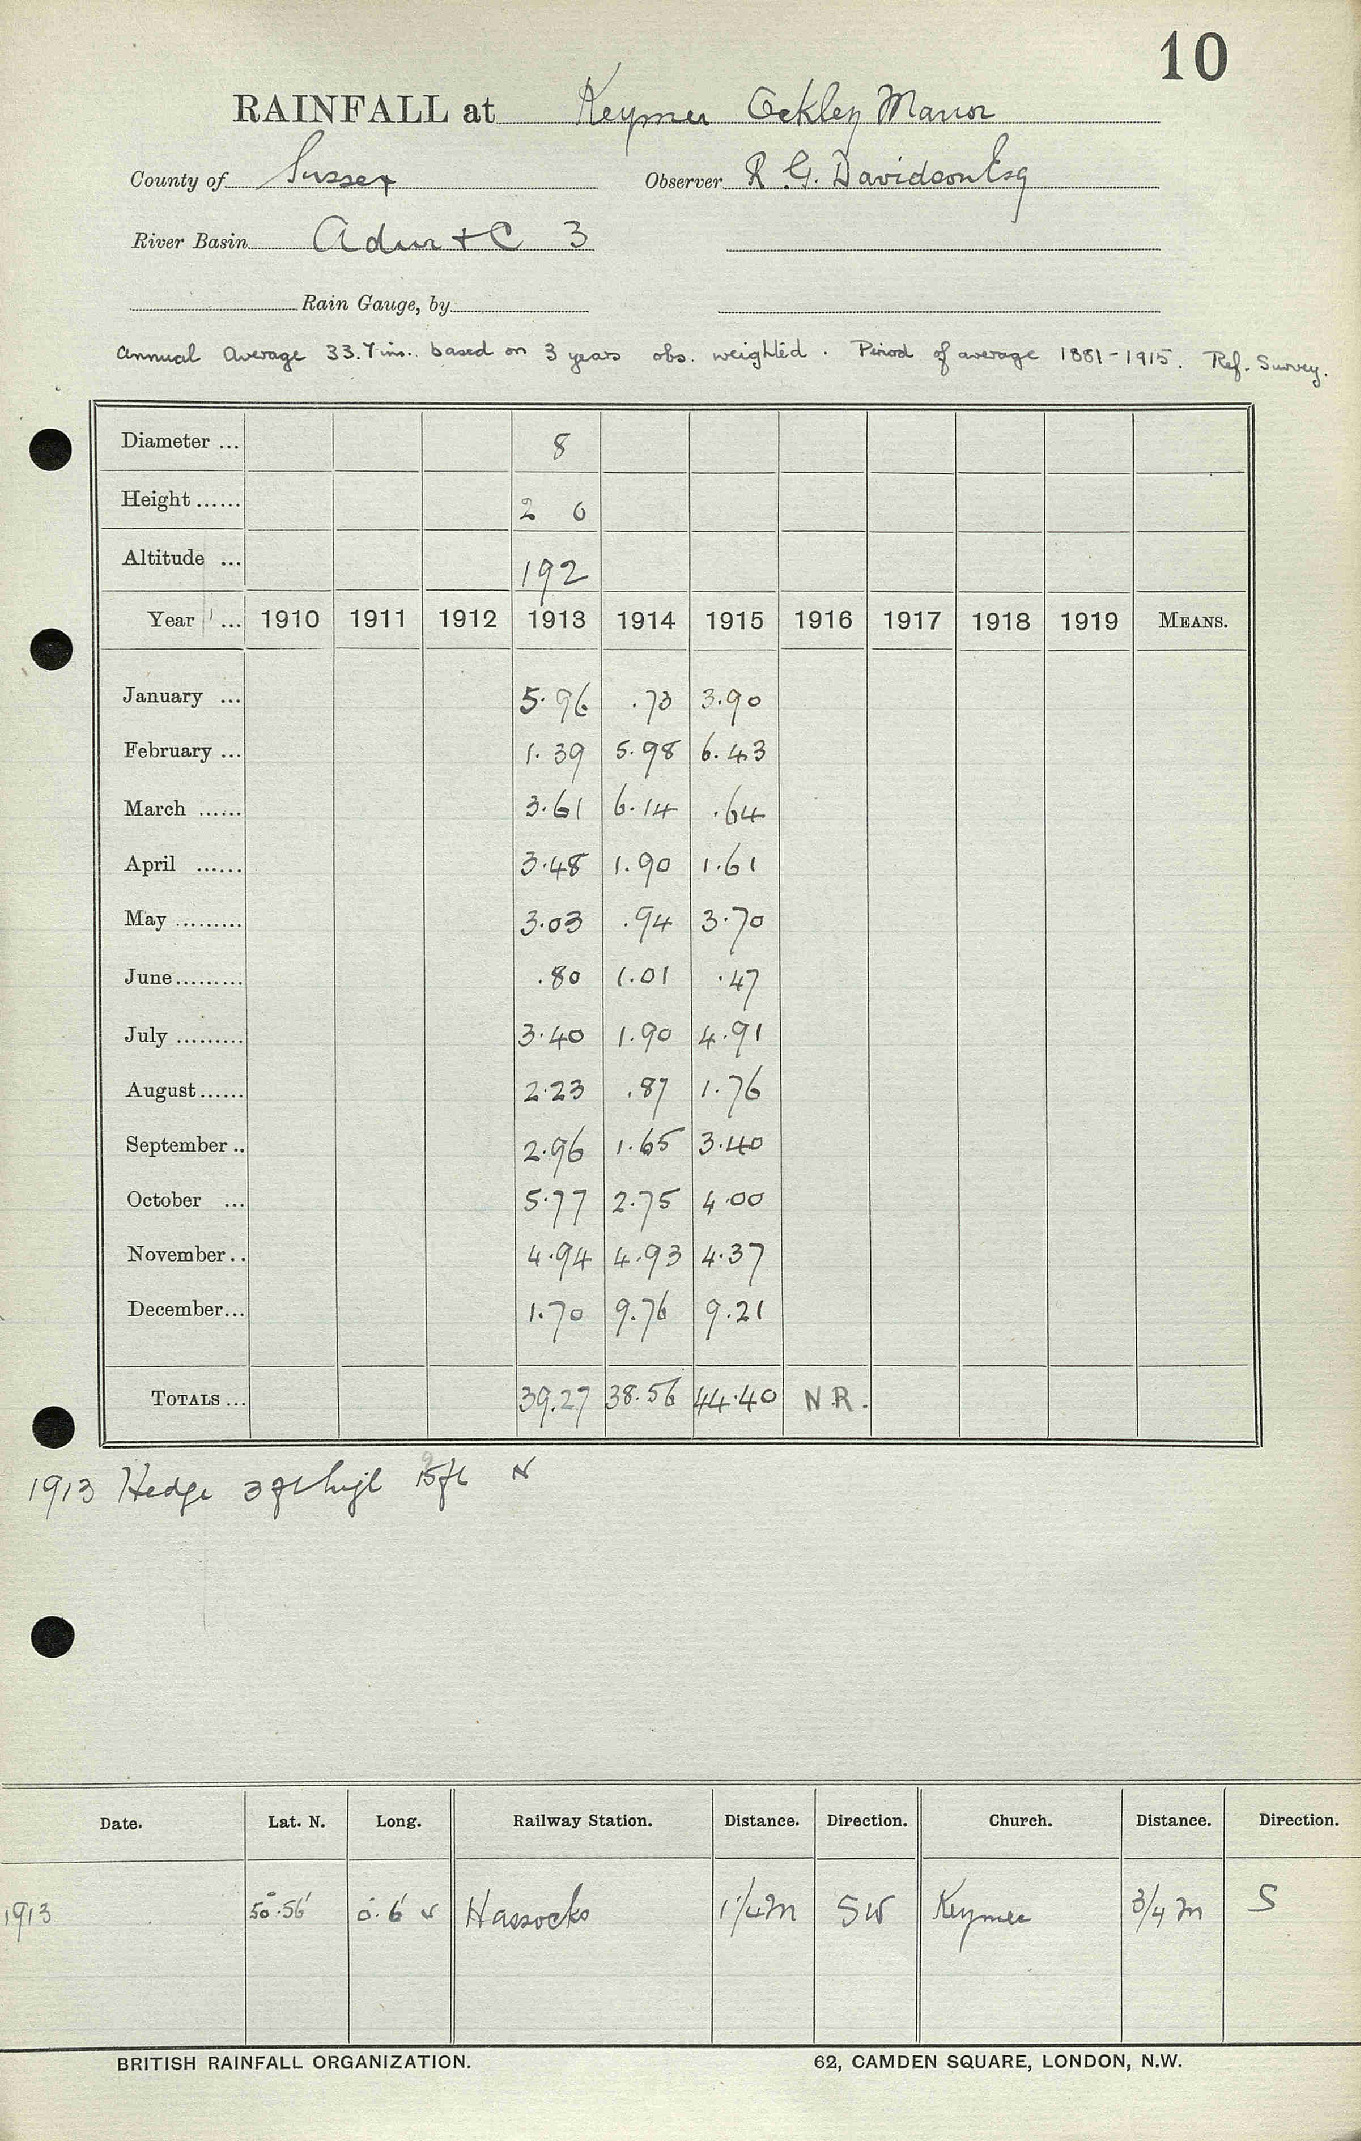 10
RAINFALL at Keymer Ockley Manor
County of Sussex Observer R. G. Davidson Esq
River Basin Adur + C 3
Rain Gauge, by
Annual Average 33.7 ins. based on 3 years obs. weighted. Period of average 1881-1915. Ref. Survey.
Diameter ... 8
Height ...... 2 0
Altitude ... 192
Year ... 1910 1911 1912 1913 1914 1915 1916 1917 1918 1919 MEANS.
January ... 5.96 .73 3.90
February ... 1.39 5.98 6.43
March ...... 3.61 6.14 .64
April ...... 3.48 1.90 1.61
May ......... 3.03 .94 3.70
June ......... .80 1.01 .47
July ......... 3.40 1.90 4.91
August ...... 2.23 .87 1.76
September .. 2.96 1.65 3.40
October ... 5.77 2.75 4.00
November .. 4.94 4.93 4.37
December ... 1.70 9.76 9.21
TOTALS ... 39.27 38.56 44.40 N.R.
1913 Hedge 3 ft high 15 ft N
Date. Lat. N. Long. Railway Station. Distance. Direction. Church. Distance. Direction.
1913 50°.56' 0°.6' W Hassocks 1 1/4 m SW Keymer 3/4 m S
BRITISH RAINFALL ORGANIZATION. 62, CAMDEN SQUARE, LONDON, N.W.